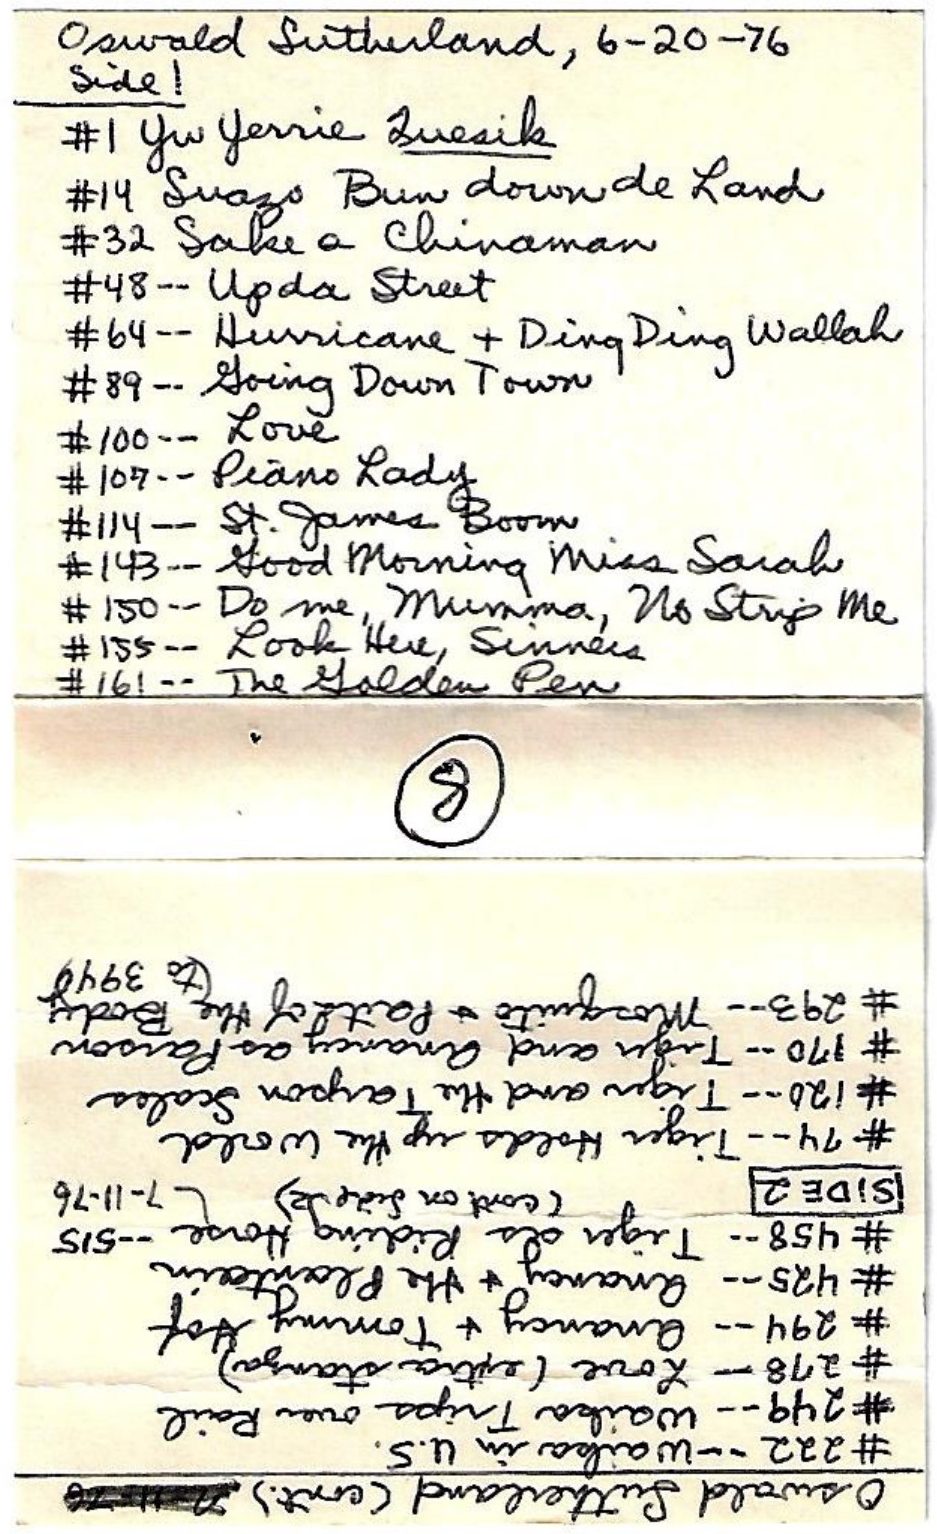 Oswald Sutherland, 6-20-76
Side 1
#1 Yu Yerrie
#14 Suazo Bun down de Land
#32 Sake a Chinaman
#48-- Upda Street
#64-- Hurricane + Ding Ding Wallah
#89-- Going Down Town
#100-- Love
#107-- Piano Lady
#114-- St. James Boom
#143-- Good Morning Miss Sarah
#150-- Do me, Mumma, No Strip Me
#155-- Look Here, Sinners
#161-- The Golden Pen
8
Oswald Sutherland (cont.)
#222-- Waika in U.S.
#249-- Waika Trips over Rail
#278-- Love (extra stanza)
#294-- Anancy + Tommy Gof
#425-- Anancy + the Plantain
#458-- Tiger als Riding Horse --515
(cont on Side 2)
SIDE 2
7-11-76
#74-- Tiger Holds up the World
#120-- Tiger and the Tarpon Scales
#170-- Tiger and Anancy as Parson
#293-- Mosquito + of the Body
(to 394)